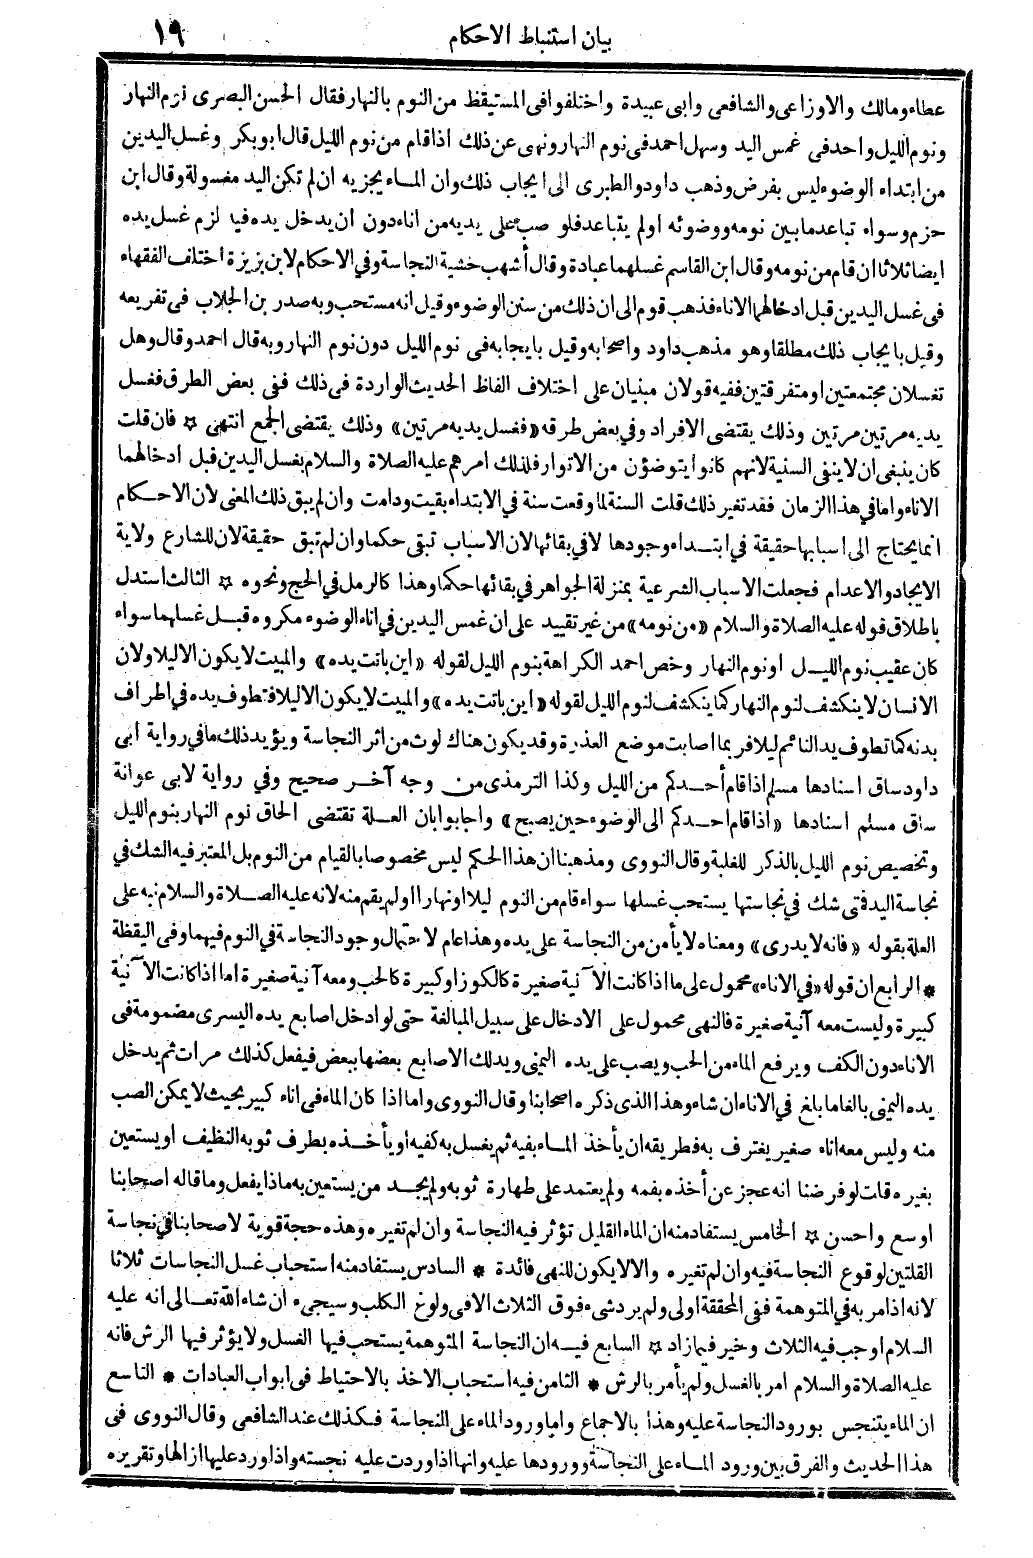 بيان استنباط الاحكام ١٩
عطاء ومالك والاوزاعى والشافعى وابى عبيدة واختلفوا فى المستيقظ من النوم بالنهار فقال الحسن البصرى نوم النهار
ونوم الليل واحد فى غمس اليد وسهل احمد فى نوم النهار ونهى عن ذلك اذا قام من نوم الليل قال ابو بكر وغسل اليدين
من ابتداء الوضوء ليس بفرض وذهب داود والطبرى الى ايجاب ذلك وان الماء يجزيه ان لم تكن اليد مغسولة وقال ابن
حزم وسواء تباعد ما بين نومه ووضوئه اولم يتباعد فلو صب على يديه من اناء دون ان يدخل يده فيه لزم غسل يده
ايضا ثلاثا ان قام من نومه وقال ابن القاسم غسلهما عبادة وقال أشهب خشية النجاسة وفي الاحكام لابن بزيزة اختلف الفقهاء
فى غسل اليدين قبل ادخالهما الاناء فذهب قوم الى ان ذلك من سنن الوضوء وقيل انه مستحب وبه صدر بن الجلاب فى تفريعه
وقيل بايجاب ذلك مطلقا وهو مذهب داود واصحابه وقيل بايجابه فى نوم الليل دون نوم النهار وبه قال احمد وقال وهل
تغسلان مجتمعتين او متفرقتين ففيه قولان مبنيان على اختلاف الفاظ الحديث الواردة فى ذلك ففى بعض الطرق فغسل
يديه مرتين مرتين وذلك يقتضى الافراد وفي بعض طرقه «فغسل يديه مرتين» وذلك يقتضى الجمع انتهى ☆ فان قلت
كان ينبغى ان لا ينفى السنية لانهم كانوا يتوضؤن من الاتوار فلذلك امرهم عليه الصلاة والسلام بغسل اليدين قبل ادخالهما
الاناء واما في هذا الزمان فقد تغير ذلك قلت السنة لما وقعت سنة في الابتداء بقيت ودامت وان لم يبق ذلك المعنى لان الاحكام
انما يحتاج الى اسبابها حقيقة في ابتداء وجودها لا في بقائها لان الاسباب تبقى حكما وان لم تبق حقيقة لان للشارع ولاية
الايجاد والاعدام فجعلت الاسباب الشرعية بمنزلة الجواهر في بقائها حكما وهذا كالرمل في الحج ونحوه ☆ الثالث استدل
باطلاق قوله عليه الصلاة والسلام «من نومه» من غير تقييد على ان غمس اليدين في اناء الوضوء مكروه قبل غسلهما سواء
كان عقيب نوم الليل او نوم النهار وخص احمد الكراهة بنوم الليل لقوله «اين باتت يده» والمبيت لا يكون الا ليلا ولان
الانسان لا ينكشف لنوم النهار كما ينكشف لنوم الليل لقوله «اين باتت يده» والمبيت لا يكون الا ليلا فتطوف يده في اطراف
بدنه كما تطوف يد النائم ليلا فربما اصابت موضع العذرة وقد يكون هناك لوث من اثر النجاسة ويؤيد ذلك ما في رواية ابى
داود ساق اسنادها مسلم اذا قام أحدكم من الليل وكذا الترمذى من وجه آخر صحيح وفي رواية لابى عوانة
ساق مسلم اسنادها «اذا قام احدكم الى الوضوء حين يصبح» واجابوا بان العلة تقتضى الحاق نوم النهار بنوم الليل
وتخصيص نوم الليل بالذكر للغلبة وقال النووى ومذهبنا ان هذا الحكم ليس مخصوصا بالقيام من النوم بل المعتبر فيه الشك في
نجاسة اليد فتى شك في نجاستها يستحب غسلها سواء قام من النوم ليلا او نهارا او لم يقم منه لانه عليه الصلاة والسلام نبه على
العلة بقوله «فانه لا يدرى» ومعناه لا يأمن من النجاسة على يده وهذا عام لاحتمال وجود النجاسة في النوم فيهما وفى اليقظة
* الرابع ان قوله «في الاناء» محمول على ما اذا كانت الآنية صغيرة كالكوز او كبيرة كالحب ومعه آنية صغيرة اما اذا كانت الآنية
كبيرة وليست معه آنية صغيرة فالنهى محمول على الادخال على سبيل المبالغة حتى لو ادخل اصابع يده اليسرى مضمومة فى
الاناء دون الكف ويرفع الماء من الحب ويصب على يده اليمنى ويدلك الاصابع بعضها ببعض فيفعل كذلك مرات ثم يدخل
يده اليمنى بالغا ما بلغ في الاناء ان شاء وهذا الذى ذكره اصحابنا وقال النووى واما اذا كان الماء فى اناء كبير بحيث لا يمكن الصب
منه وليس معه اناء صغير يغترف به فطريقه ان يأخذ الماء بفيه ثم يغسل به كفيه او يأخذه بطرف ثوبه النظيف او يستعين
بغيره قلت لو فرضنا انه عجز عن أخذه بفمه ولم يعتمد على طهارة ثوبه ولم يجد من يستعين به ماذا يفعل وما قاله اصحابنا
اوسع واحسن ☆ الخامس يستفاد منه ان الماء القليل تؤثر فيه النجاسة وان لم تغيره وهذه حجة قوية لاصحابنا في نجاسة
القلتين لوقوع النجاسة فيه وان لم تغيره والا لا يكون للنهى فائدة * السادس يستفاد منه استحباب غسل النجاسات ثلاثا
لانه اذا امر به في المتوهمة ففى المحققة اولى ولم يرد شىء فوق الثلاث الا فى ولوغ الكلب وسيجىء ان شاء الله تعالى انه عليه
السلام اوجب فيه الثلاث وخير فيما زاد ☆ السابع فيه ان النجاسة المتوهمة يستحب فيها الغسل ولا يؤثر فيها الرش فانه
عليه الصلاة والسلام امر بالغسل ولم يأمر بالرش * الثامن فيه استحباب الاخذ بالاحتياط فى ابواب العبادات * التاسع
ان الماء يتنجس بورود النجاسة عليه وهذا بالاجماع واما ورود الماء على النجاسة فكذلك عند الشافعى وقال النووى فى
هذا الحديث والفرق بين ورود الماء على النجاسة وورودها عليه وانها اذا وردت عليه نجسته واذا ورد عليها ازالها وتقريره